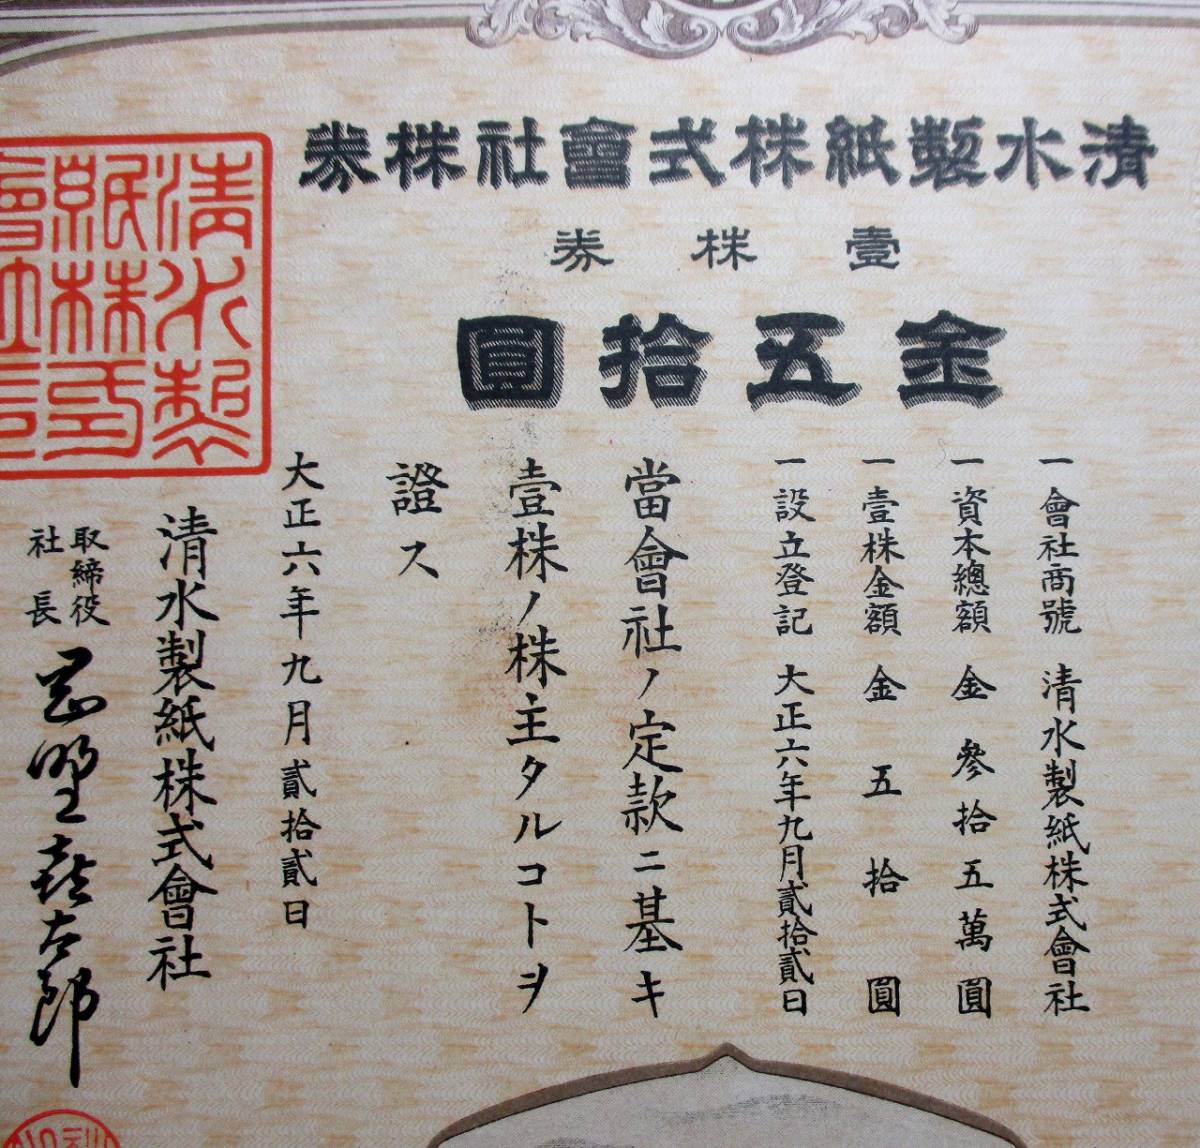 清水製紙株式會社株券
壹株券
金五拾圓
一會社商號 清水製紙株式會社
一資本總額 金參拾五萬圓
一壹株金額 金五拾圓
一設立登記 大正六年九月貳拾貳日
當會社ノ定款ニ基キ
壹株ノ株主タルコトヲ
證ス
大正六年九月貳拾貳日
清水製紙株式會社
取締役
社長
野喜太郎
清水製
紙株式
會社